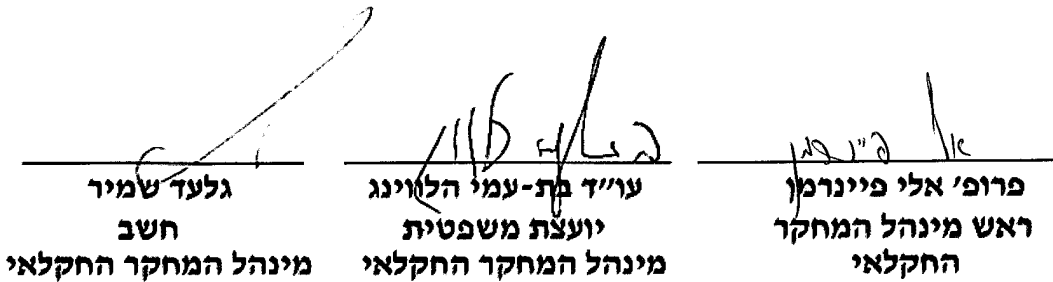 פרופ' אלי פיינרמן
ראש מינהל המחקר
החקלאי
עו"ד בת-עמי הלווינג
יועצת משפטית
מינהל המחקר החקלאי
גלעד שמיר
חשב
מינהל המחקר החקלאי